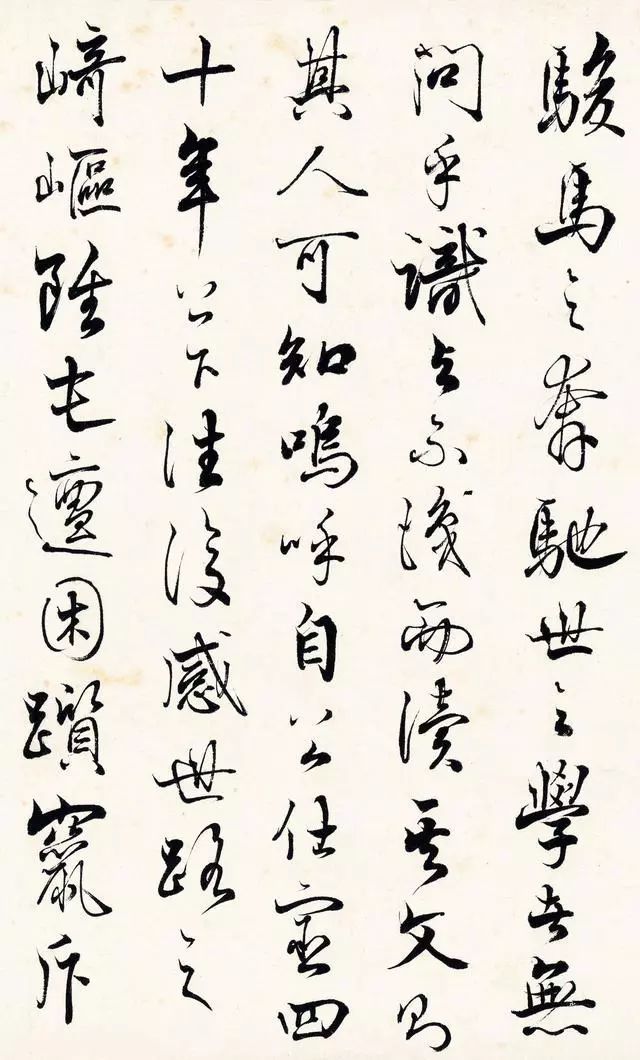 駿馬之奔馳世之學者無
問乎識與不識而讀其文則
其人可知嗚呼自公仕宦四
十年上下往復感世路之
崎嶇雖屯邅困躓竄斥